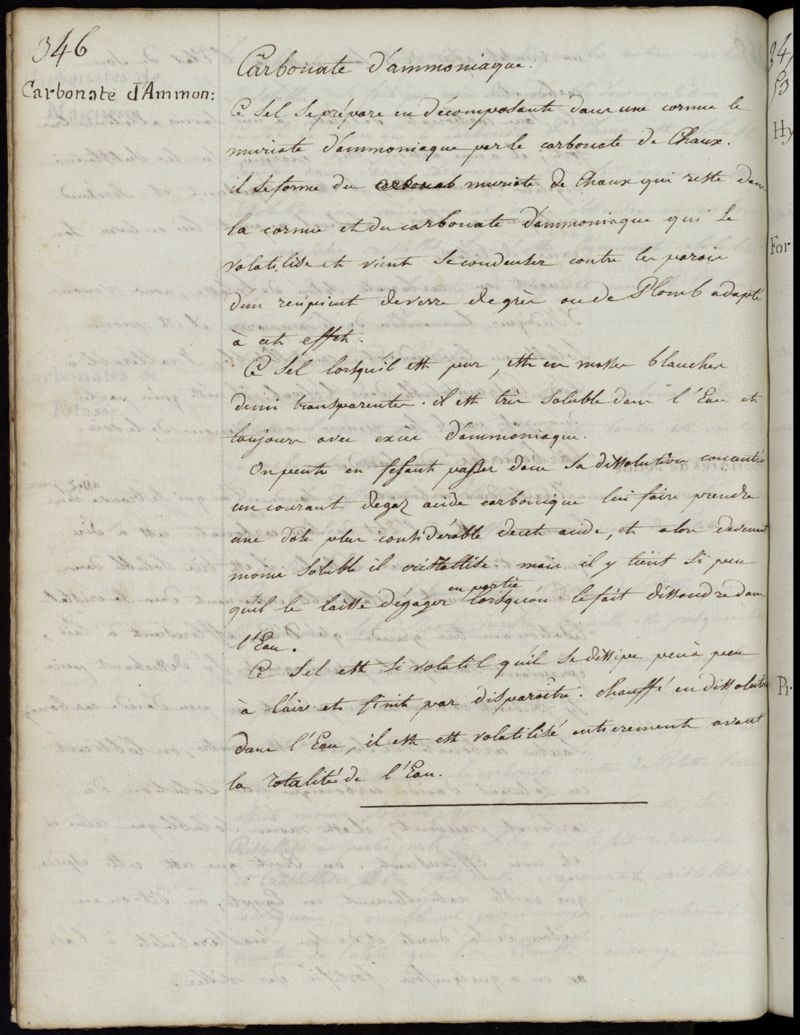 346
Carbonate d'Ammon:
Carbonate d'ammoniaque.
Ce sel se prépare en décomposant dans une cornue le
muriate d'ammoniaque par le carbonate de Chaux.
il se forme du muriate de Chaux qui reste dans
la cornue et du carbonate d'ammoniaque qui se
volatilise et vient se condenser contre les parois
d'un recipient de verre de grès ou de Plomb adapté
à cet effet.
Ce Sel lorsqu'il est pur, est en masses blanches
demi transparentes. il est très soluble dans l'Eau et
toujours avec excès d'ammoniaque.
On peut en fesant passer dans sa dissolution concentrée
un courant de gaz acide carbonique lui faire prendre
une dose plus considérable de cet acide, et alors devenant
moins soluble il cristallise. mais il y tient si peu
qu'il le laisse dégager en partie lorsqu'on le fait dissoudre dans
l'Eau.
Ce Sel est si volatil qu'il se dissipe peu à peu
à l'air et finit par disparaître. chauffé en dissolution
dans l'Eau, il est est volatilisé entierement avant
la totalité de l'Eau.
34
Hy
For
Pr